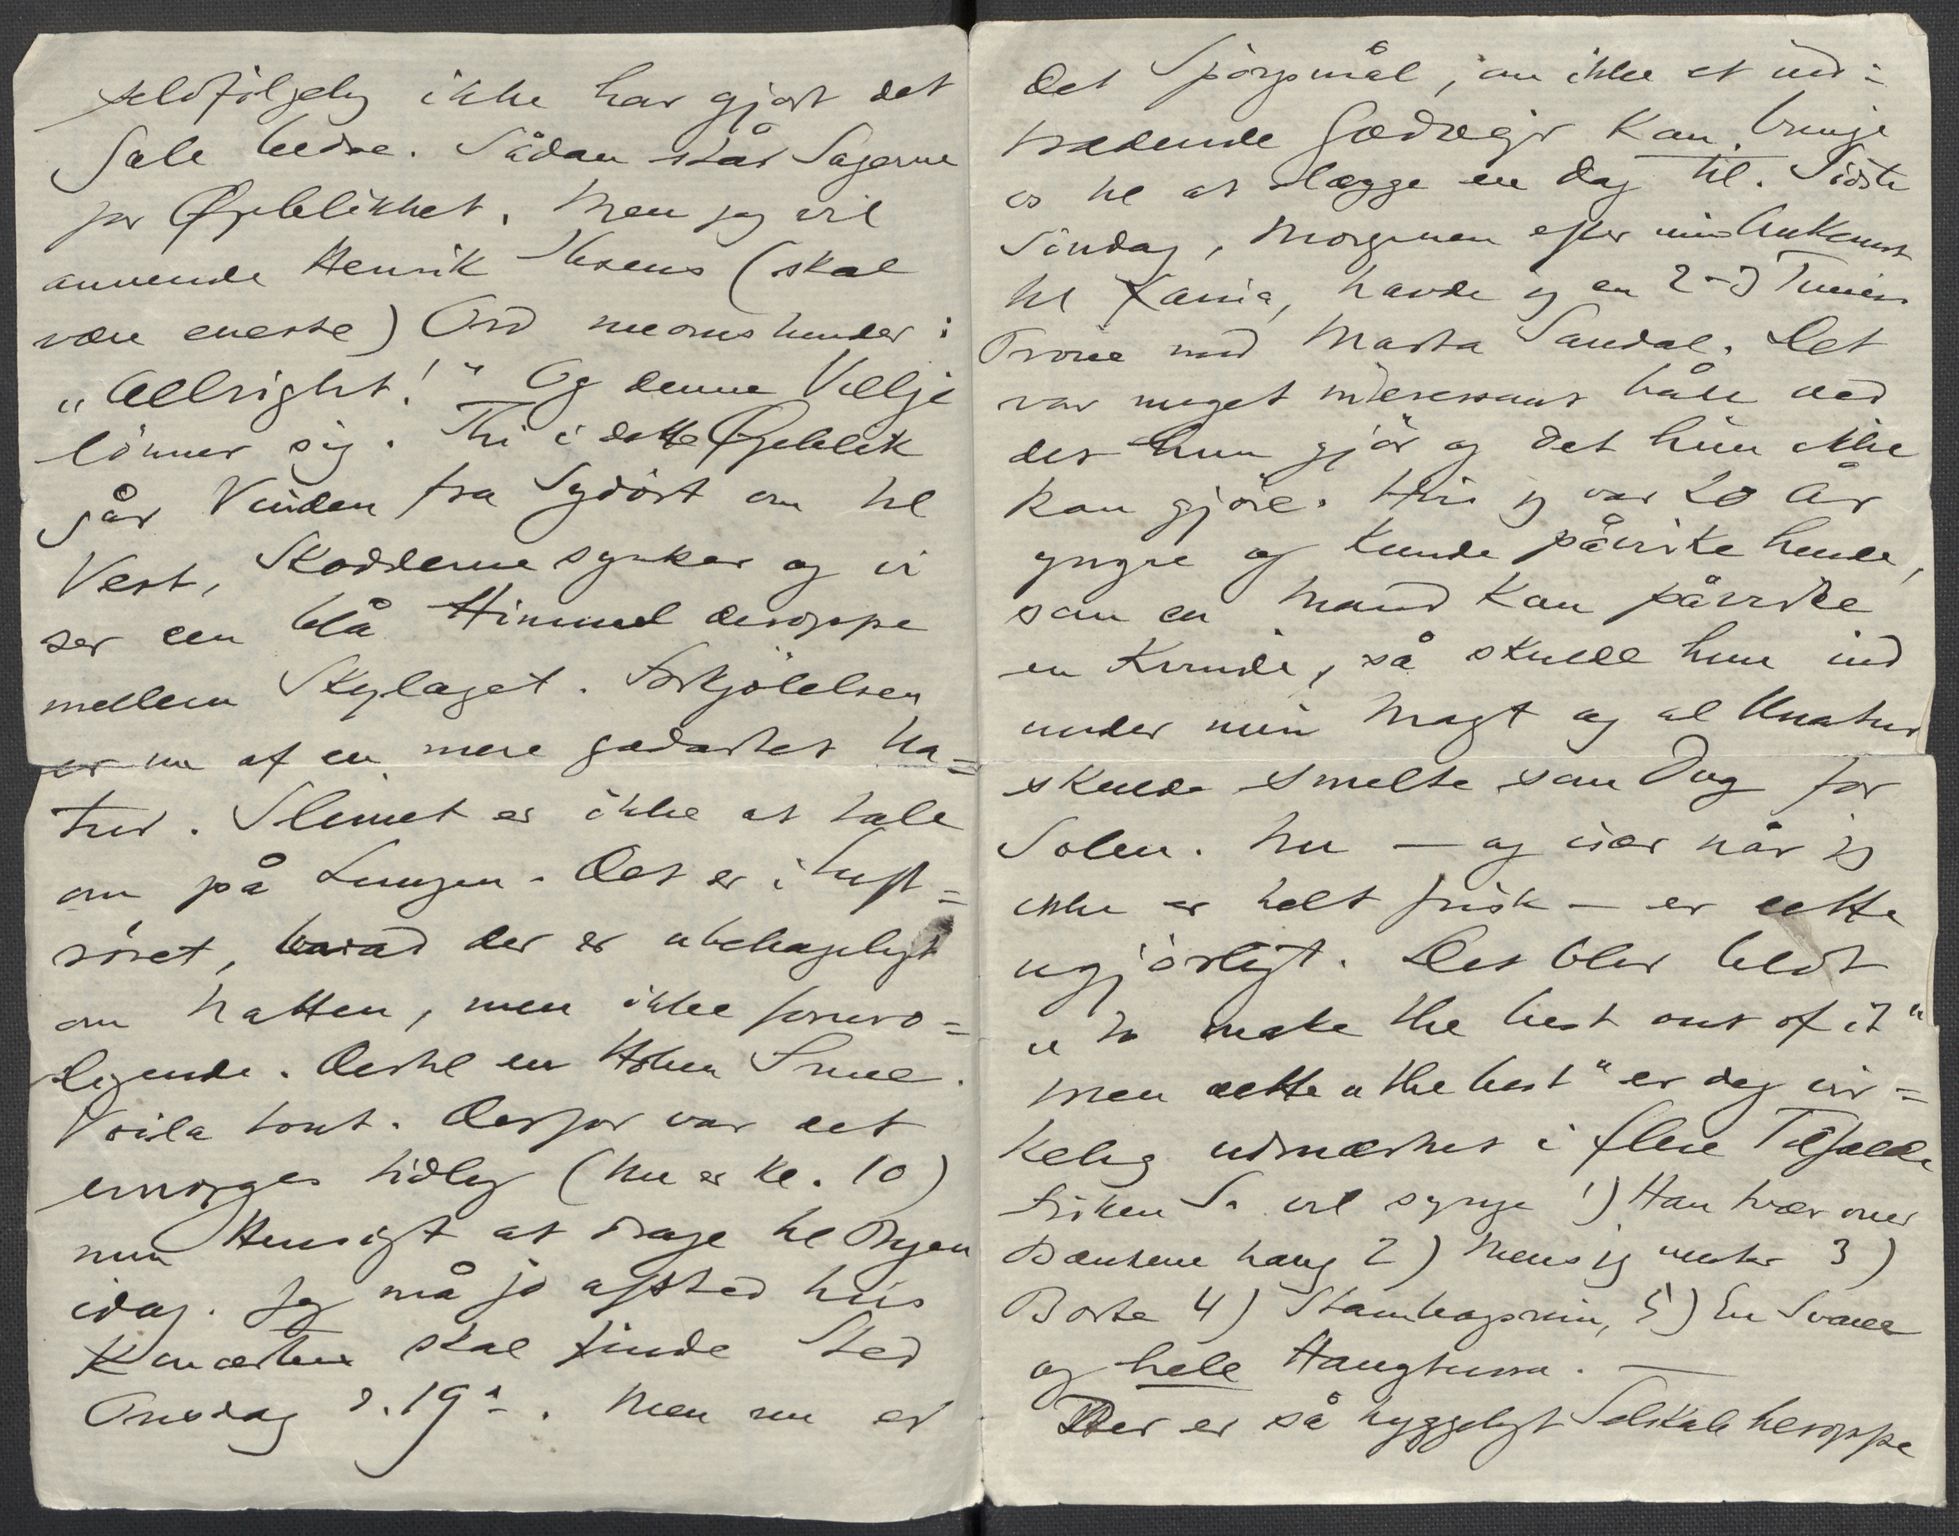 selvfølgelig ikke har gjort det
Gale bedre. Sådan står Sagerne
for Øjeblikket. Men jeg vil
anvende Henrik Ibsens (skal
være eneste) Ord meomhender:
„Allright!" Og denne Villje
lönner sig. Thi i dette Øjeblik
går Vinden fra Sydöst om til
Vest, Skodderne synker og vi
ser den blå Himmel deroppe
mellem Skylaget. Forkjölelsen
er nu af en mere godartet Na=
tur. Slimet er ikke at tale
om på Lungen. Det er i Luft=
röret, hvad der er ubehageligt
om Natten, men ikke foruro=
ligende. Dertil en Hoben Snue.
Voila tout. Derfor var det
imorges tidlig (nu er kl. 10)
min Hensigt at drage til Byen
idag. Jeg må jo afsted hvis
Koncerten skal finde Sted
Onsdag d. 19de. Men nu er
det Spörgsmål, om ikke et ind=
trædende Godvejr kan bringe
os til at lægge en dag til. Sidste
Söndag, Morgenen efter min Ankomst
til Xania, havde jeg en 2-3 Timers
Pröve med Marta Sandal. Det
var meget interessant både ved
det hun gjör og det hun ikke
kan gjöre. Hvis jeg var 20 År
yngre og kunde påvirke hende,
som en Mand kan påvirke
en Kvinde, så skulde hun ind
under min Magt og al Unatur
skulde smelte som Dug for
Solen. Nu – og især når jeg
ikke er helt frisk – er dette
ugjörligt. Det blir bedst
„to make the best out of it"
men dette „the best" er dog vir=
kelig udmærket i flere Tilfælde
Fröken S. vil synge 1) Han tvær over
Bænkene hang 2) Mens jeg venter 3)
Borte 4) Stambogsrim, 5) En Svane
og hele Haugtussa. —
Der er så hyggeligt Selskab heroppe